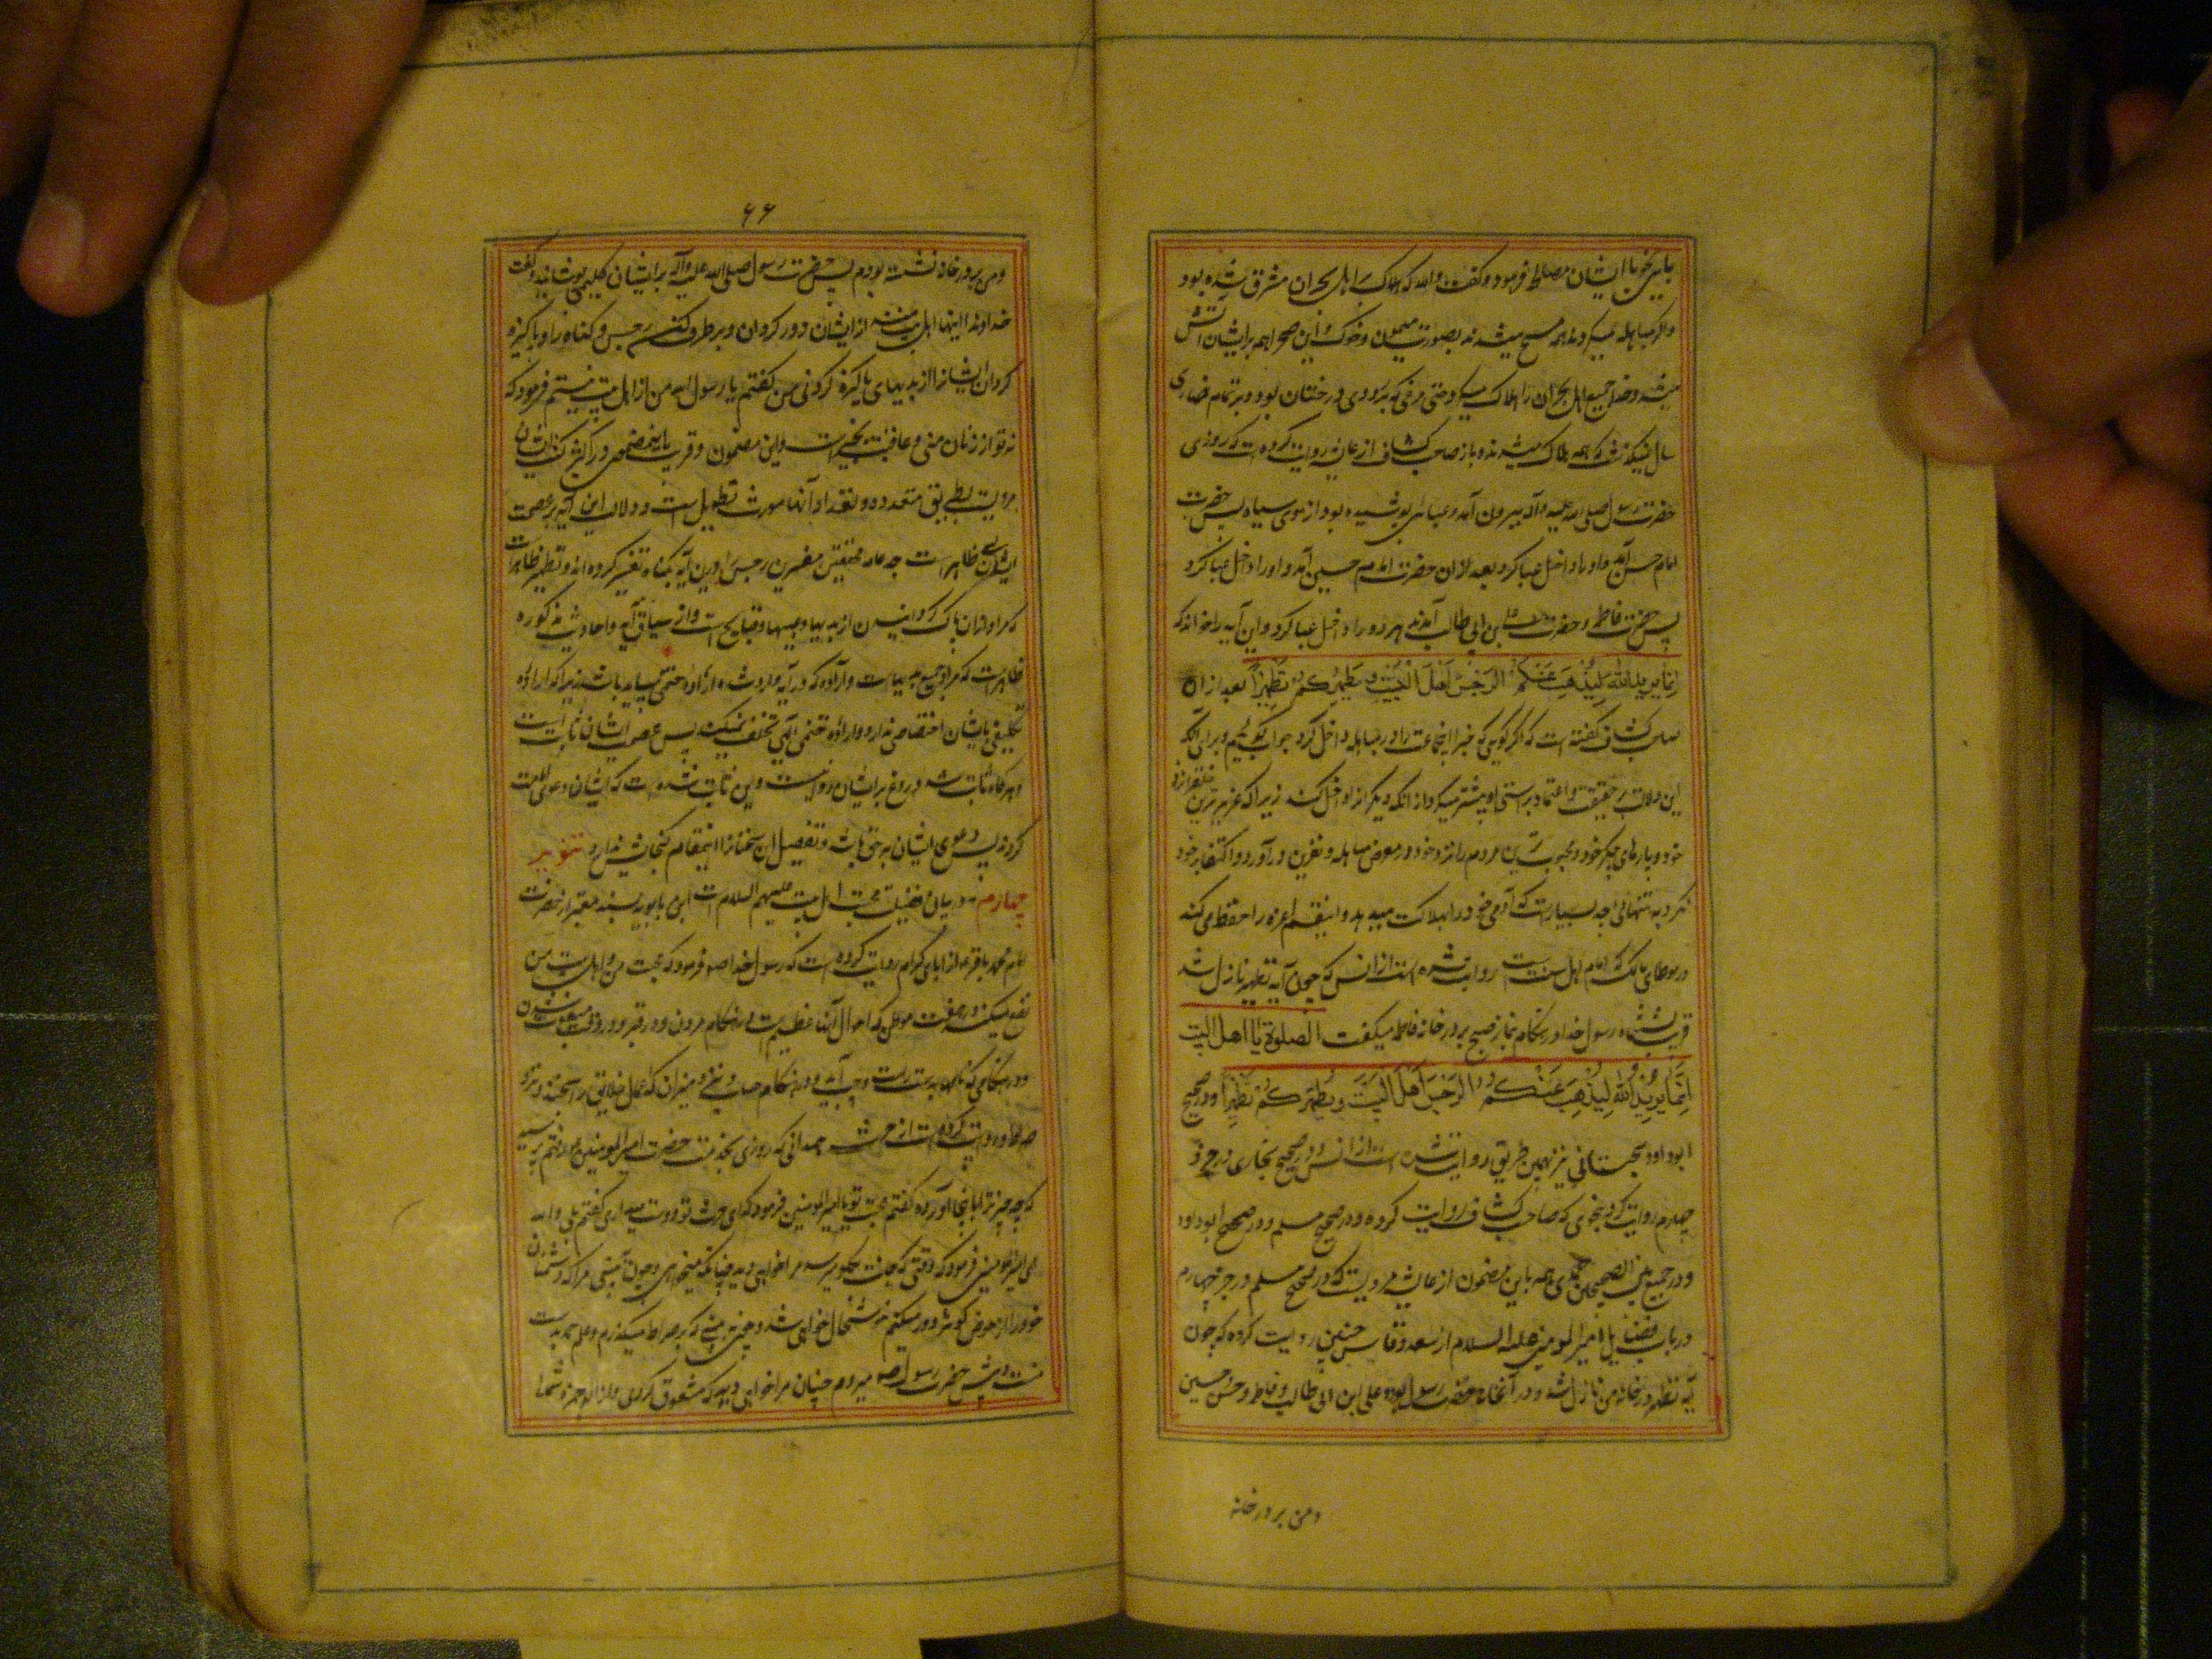 بایشان مصالحه فرمود و گفت والله که هلاک اهل نجران مشرف شده بود
و اگر مباهله میکردند همه مسخ میشدند بصورت میمون و خوک و این صحرا همه برایشان آتش
میشد و خدا جمیع اهل نجران را هلاک میکرد حتی مرغی که بر روی درختان بود و بر تمام نصاری
سال نمیگذشت که همه هلاک میشدند و باز صاحب کشاف از عایشه روایت کرده است که روزی
حضرت رسول صلی الله علیه و آله بیرون آمد و عبائی پوشیده بود از موی سیاه پس حضرت
امام حسن آمد و او را داخل عبا کرد بعد از آن حضرت امام حسین آمد و او را داخل عبا کرد
پس حضرت فاطمه و حضرت علی بن ابی طالب آمدند هر دو را داخل عبا کرد و این آیه را خواند که
اِنَّمَا یُرِیدُ اللهُ لِیُذْهِبَ عَنْکُمُ الرِّجْسَ اَهْلَ الْبَیْتِ وَیُطَهِّرَکُمْ تَطْهِیراً بعد از آن
صاحب کشاف گفته است که اگر گویی که چرا این جماعت را در مباهله داخل کرد جواب گوئیم برای آنکه
این دلالت بر حقیقت و اعتماد بر راستی او بیشتر میکرد از آنکه دیگران را داخل کند زیرا که عزیزترین
خود و پارهای جگر خود و محبوب‌ترین مردم را نزد خود در معرض مباهله و نفرین درآورد و اکتفا بر خود
نکرد به تنهائی و چه بسیار است که آدمی خود را بهلاکت میدهد و اینقسم اعزه را حفظ می کند
در موطای مالک که امام اهل سنت است روایت شده است از انس که چون آیه تطهیر نازل شد
قریب ششماه رسول خدا در هنگام نماز صبح بر در خانه فاطمه میگفت الصلوة یا اهل البیت
اِنَّمَا یُرِیدُ اللهُ لِیُذْهِبَ عَنْکُمُ الرِّجْسَ اَهْلَ الْبَیْتِ وَیُطَهِّرَکُمْ تَطْهِیراً و در صحیح
ابو داود سجستانی نیز بهمین طریق روایت شده است از انس و در صحیح بخاری در جزو
چهارم روایت کرده بنحوی که صاحب کشاف روایت کرده و در صحیح مسلم و در صحیح ابو داود
و در جمع بین الصحیحین حمیدی همه باین مضمون از عایشه مرویست که در صحیح مسلم در جزو چهارم
در باب فضایل امیر المومنین علیه السلام از سعد وقاص چنین روایت کرده که چون
آیه تطهیر در خانه من نازل شد و در آنخانه حضرت رسول بود و علی ابن ابی طالب و فاطمه و حسن و حسین
و من بر در خانه
۶۶
و من بر در خانه نشسته بودم پس حضرت رسول صلی الله علیه و آله برایشان گلیمی پوشانید و گفت
خداوندا اینها اهل بیت منند از ایشان دور گردان و برطرف کن رجس و گناه را و پاکیزه
گردان ایشان را از بدیهای پاکیزه کردنی من گفتم یا رسول الله من از اهل بیت نیستم فرمود که
نه تو از زنان منی و عاقبت بخیر است و این مضمون و قریب باین مضمون در اکثر کتب ایشان
مرویست بطریق متعدده و تعداد آنها مورث تطویل است و دلالت این آیه بر عصمت
ایشان ظاهر است چه عامه محققین مفسرین رجس را درین آیه بگناه تفسیر کرده اند و تطهیر ظاهر است
که مراد از آن پاک گردانیدن از بدیها و عیبها و قبایح است و از سیاق آیه و احادیث مذکوره
ظاهر است که مراد جمیع بدیهاست و اراده که در آیه وارد شده اراده حتمی میباید باشد زیرا که اراده
تکلیفی بایشان اختصاص ندارد و اراده حتمی الهی تخلف نمیکند پس عصمت ایشان ثابت است
و هر گاه ثابت شد دروغ برایشان روا نیست و این ثابت شده است که ایشان دعوی امامت
کردند پس دعوی ایشان بر حق باشد و تفصیل این سخنان را اینمقام گنجایش ندارد تنویر
چهارم در بیان فضیلت محبت اهل بیت علیهم السلام است ابن بابویه بسند معتبر از حضرت
امام محمد باقر از آبای کرام روایت کرده است که رسول خدا ص فرمود که محبت من و اهل بیت من
نفع میکند در هفت موطن که اهوال آنها عظیم است در هنگام مردن و در قبر و در وقت مبعوث شدن
و در هنگامی که نامها بدست راست و چپ آید و در هنگام حساب و نزد میزان که عمل خلایق را سنجند و نزد
صراط و روایت کرده است از حارث همدانی که روزی بخدمت حضرت امیر المومنین رفتم پرسید
که چه چیز ترا باینجا آورده گفتم محبت تو یا امیر المومنین فرمود که ای حارث تو دوست میداری گفتم بلی والله
یا امیر المومنین فرمود که وقتی که جانت بگلو رسد مرا خواهی دید چنانکه میخواهی و چون ببینی مرا که دشمنان
خود را از حوض کوثر دور میکنم خوشحال خواهی شد و چون ببینی که بر صراط میگذرم و علم حمد بدست
منست و پیش حضرت رسول ص میروم چنان مرا خواهی دید که